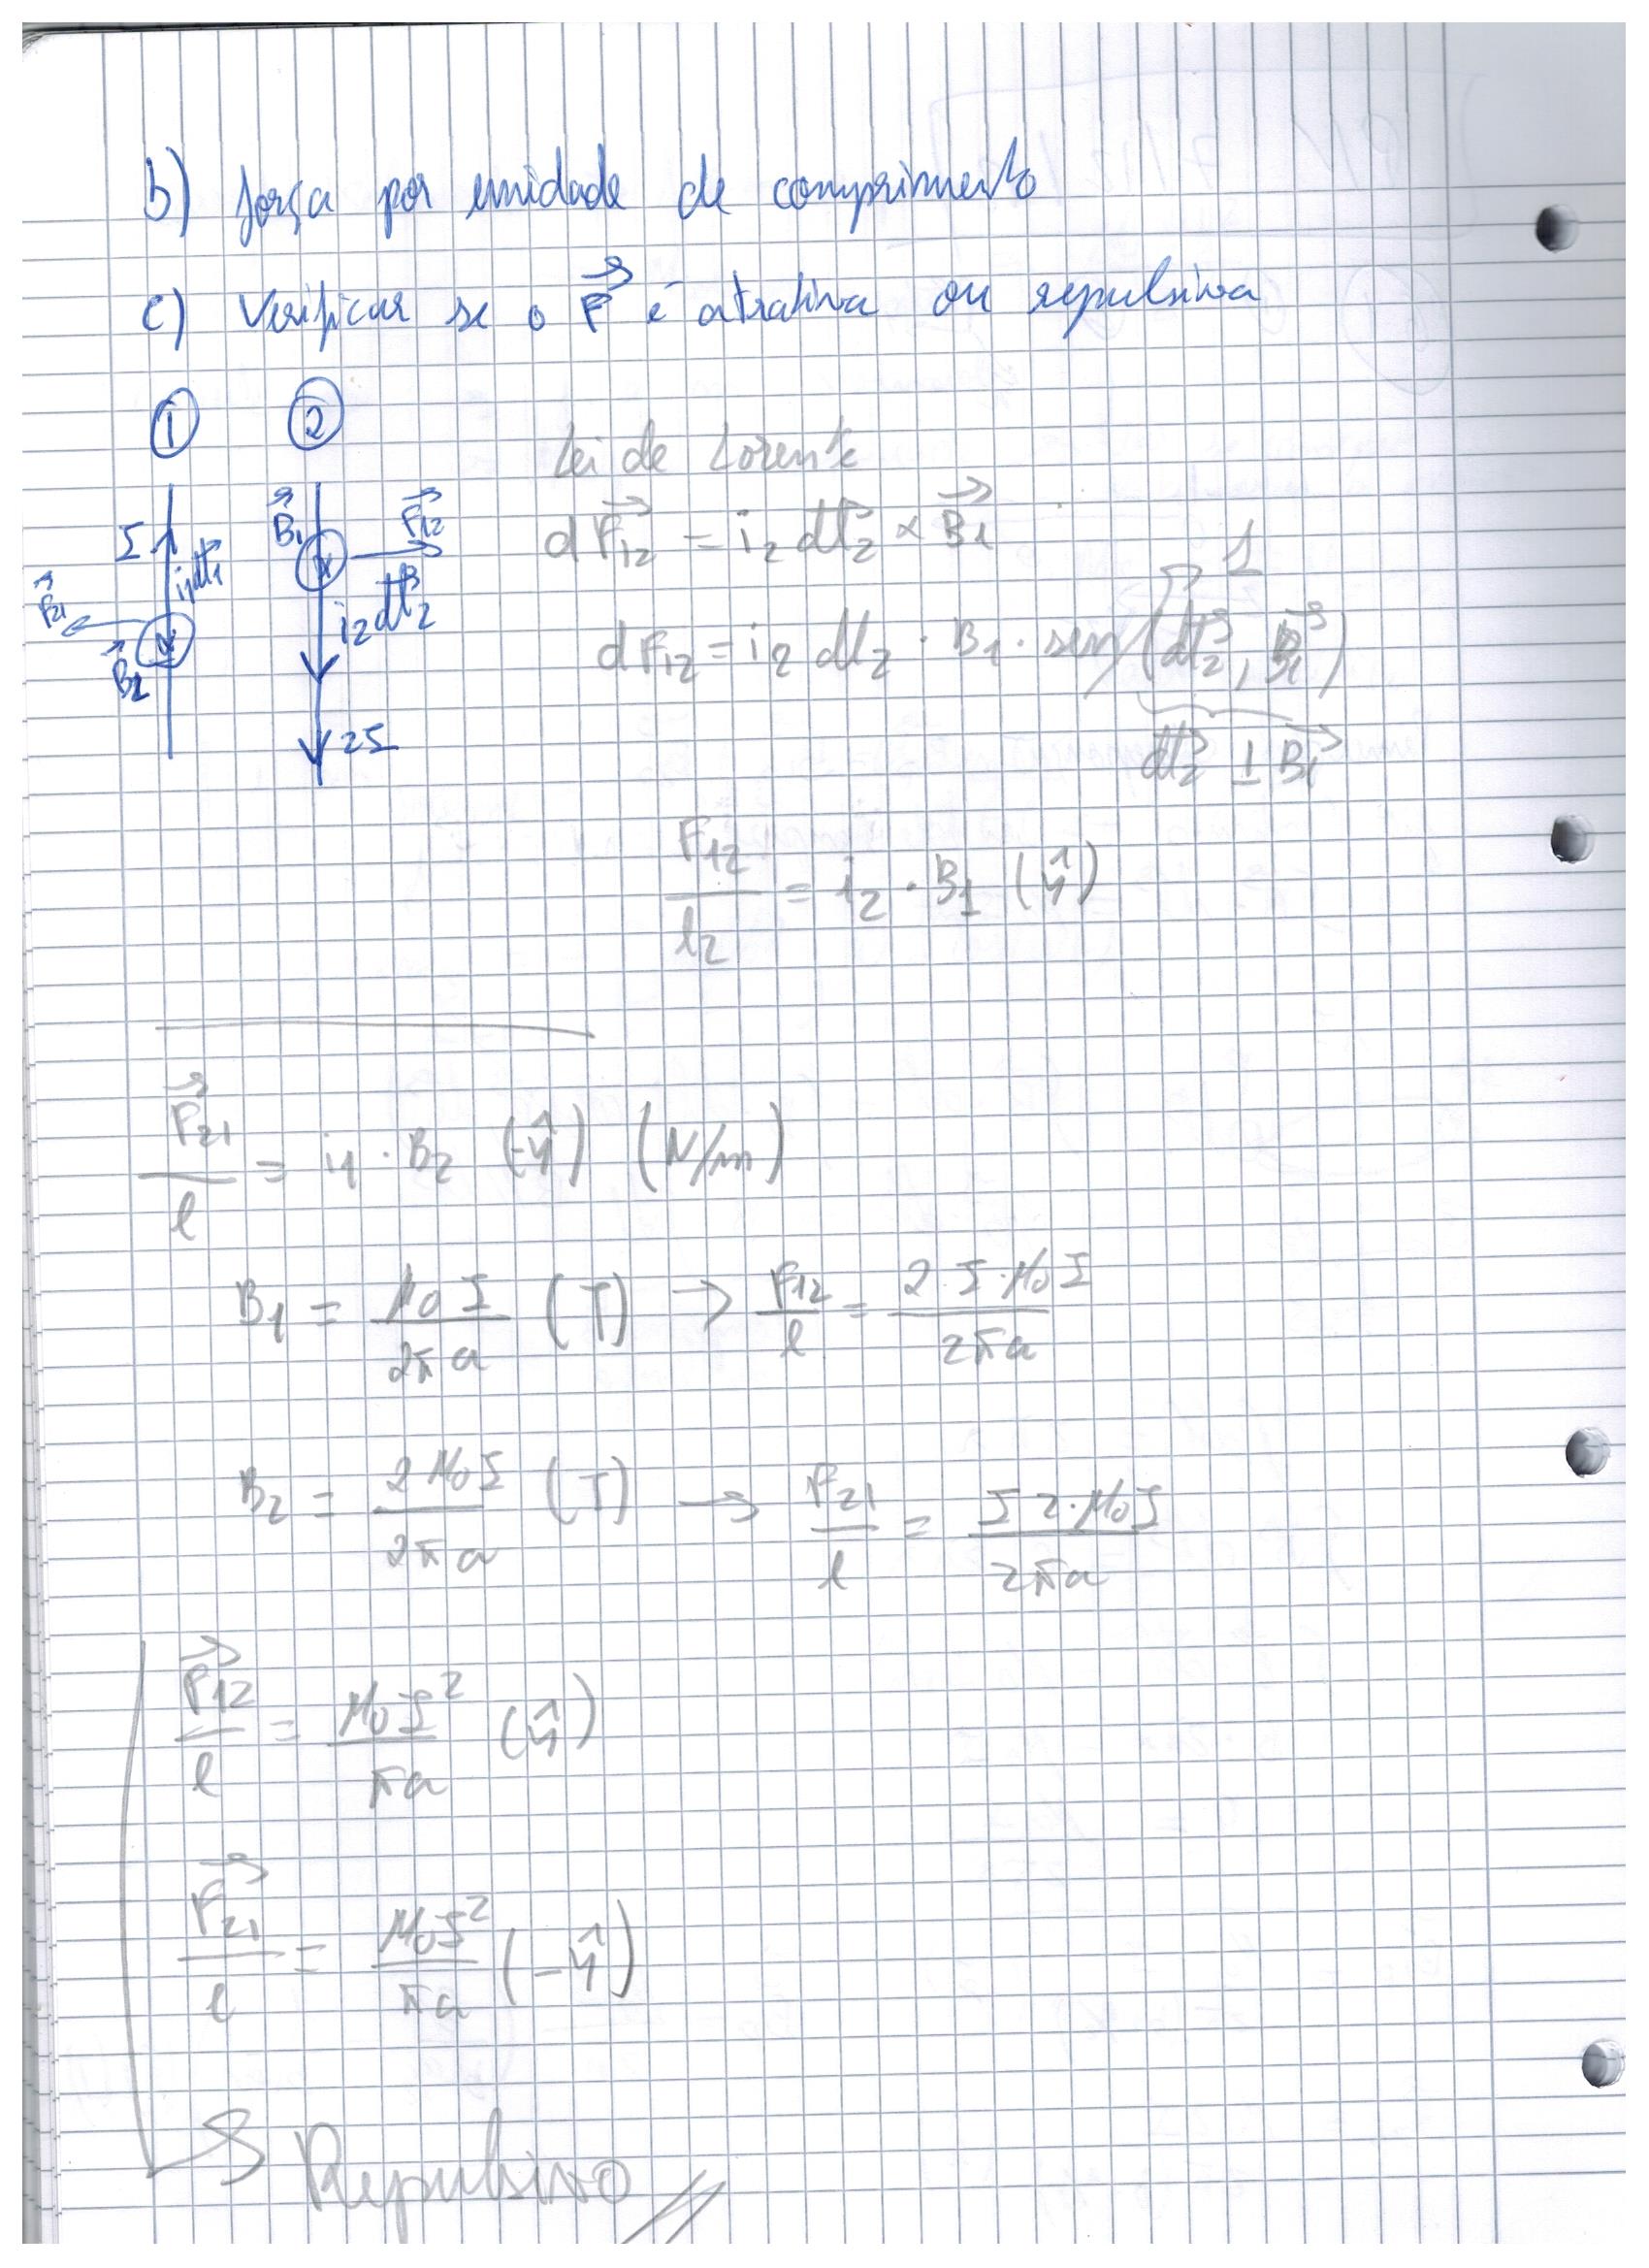 b) força por unidade de comprimento
c) Verificar se o F⃗ é atrativa ou repulsiva
① ②
Lei de Lorentz
I i₁dl⃗₁ F⃗₂₁ B⃗₂
B⃗₁ F⃗₁₂ i₂dl⃗₂ 2I
dF⃗₁₂ = i₂ dl⃗₂ × B⃗₁
1
dF₁₂ = i₂ dl₂ · B₁ · sen (dl⃗₂, B⃗₁)
dl⃗₂ ⊥ B⃗₁
F₁₂/l₂ = i₂ · B₁ (ŷ)
F⃗₂₁/l = i₁ · B₂ (-ŷ) (N/m)
B₁ = μ₀I/2πa (T) → F₁₂/l = 2·I·μ₀I/2πa
B₂ = 2μ₀I/2πa (T) → F₂₁/l = I 2·μ₀I/2πa
F⃗₁₂/l = μ₀I²/πa (ŷ)
F⃗₂₁/l = μ₀I²/πa (-ŷ)
→ Repulsivo //